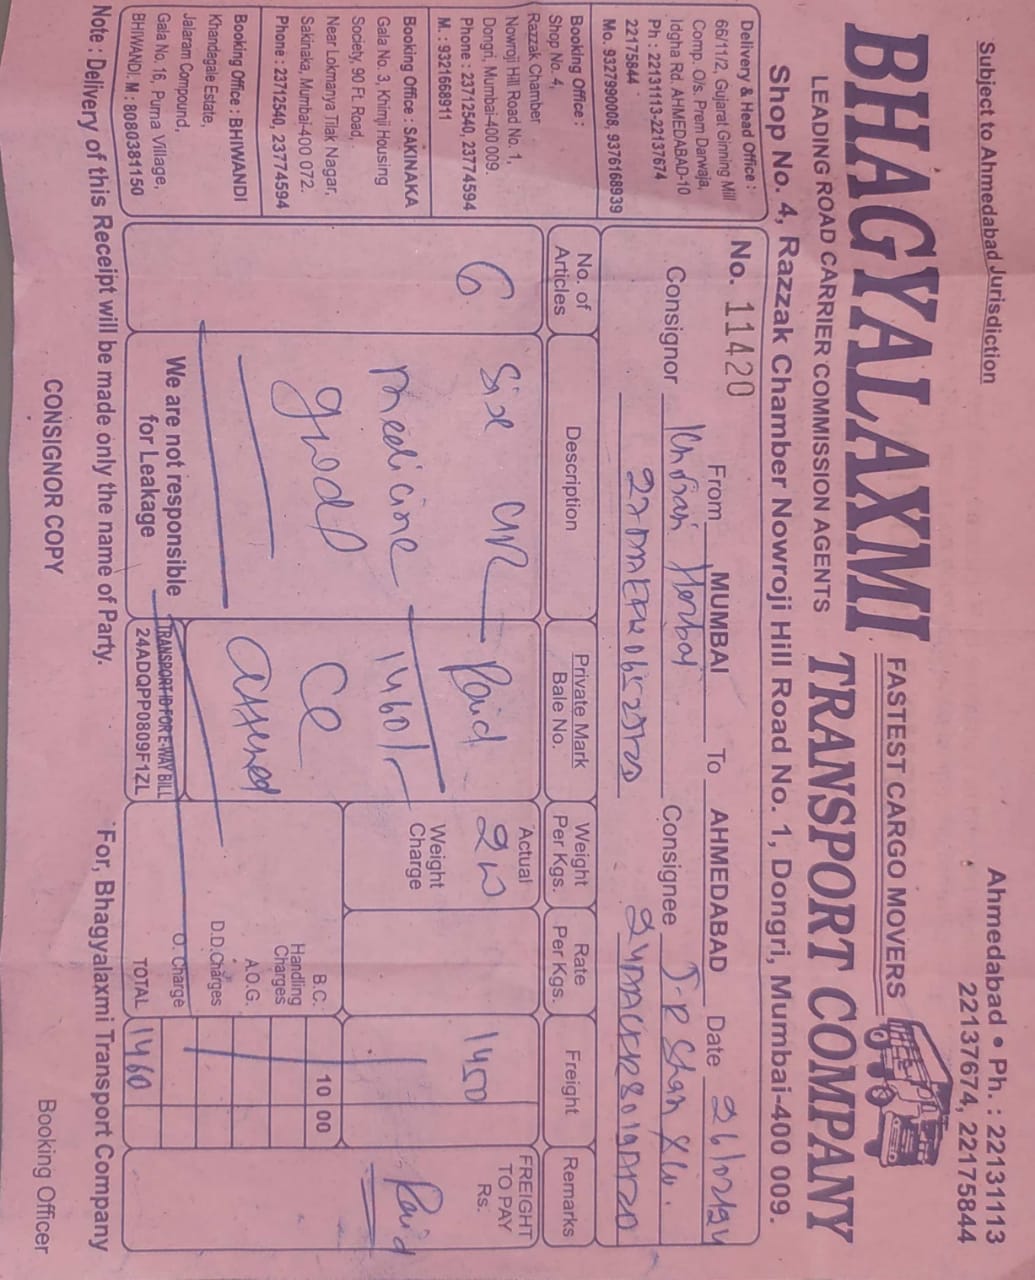 Subject to Ahmedabad Jurisdiction
Ahmedabad • Ph. : 22131113
22137674, 22175844
BHAGYALAXMI
FASTEST CARGO MOVERS
TRANSPORT COMPANY
LEADING ROAD CARRIER COMMISSION AGENTS
Shop No. 4, Razzak Chamber Nowroji Hill Road No. 1, Dongri, Mumbai-400 009.
Delivery & Head Office :
66/11/2, Gujarat Ginning Mill
Comp. O/s. Prem Darwaja,
Idgha Rd. AHMEDABAD-10
Ph : 22131113-22137674
22175844
Mo. 9327990008, 9376168939
Booking Office :
Shop No. 4,
Razzak Chamber
Nowroji Hill Road No. 1,
Dongri, Mumbai-400 009.
Phone : 23712540, 23774594
M. : 9321668911
Booking Office : SAKINAKA
Gala No. 3, Khimji Housing
Society, 90 Ft. Road,
Near Lokmanya Tilak Nagar,
Sakinaka, Mumbai-400 072.
Phone : 23712540, 23774594
Booking Office : BHIWANDI
Khandagale Estate,
Jalaram Compound,
Gala No. 16, Purna Village,
BHIWANDI. M : 8080381150
No. 11420 From MUMBAI To AHMEDABAD Date
Consignor Herbal Consignee Shah
No. of Articles
Description
Private Mark Bale No.
Weight Per Kgs.
Rate Per Kgs.
Freight
Remarks
6 Six Paid Actual 1450 FREIGHT TO PAY Rs.
medicine 1460/- Weight Charge Paid
good CC B.C. 10 00
Handling Charges
attened A.O.G.
D.D.Charges
O. Charge
We are not responsible
for Leakage
TRANSPORT ID FOR E-WAY BILL
24ADQPP0809F1ZL
TOTAL 1460
Note : Delivery of this Receipt will be made only the name of Party.
For, Bhagyalaxmi Transport Company
CONSIGNOR COPY
Booking Officer